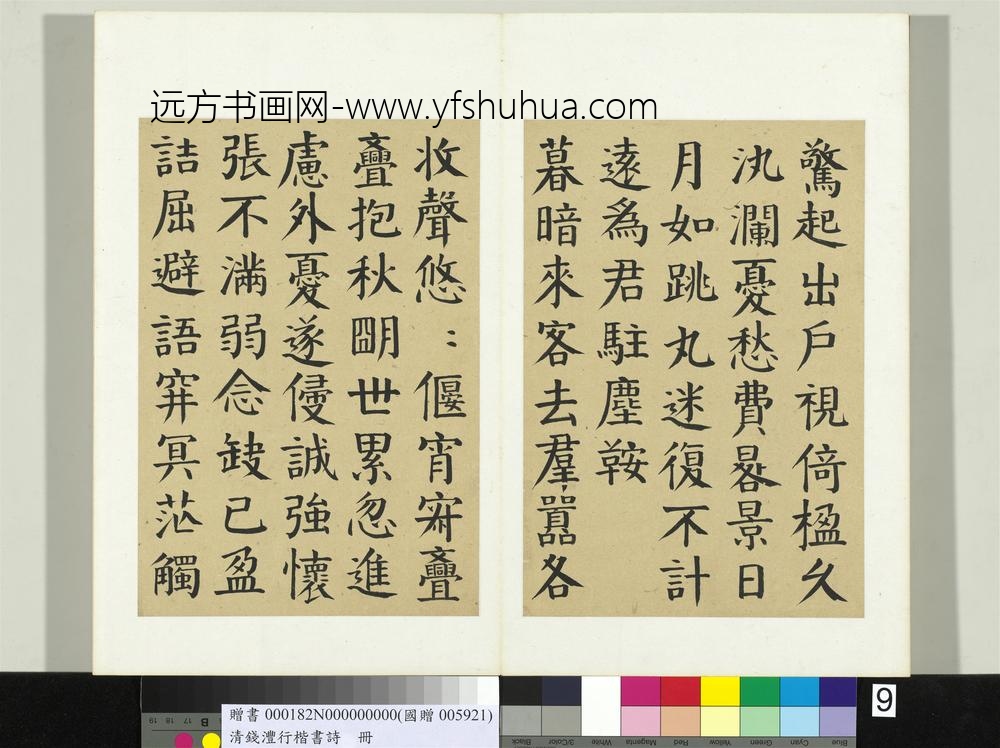 远方书画网-www.yfshuhua.com
驚起出戶視倚楹久
汍瀾憂愁費晷景日
月如跳丸迷復不計
遠為君駐塵鞍
暮暗來客去羣囂各
收聲悠〻偃宵寐亹
亹抱秋朙世累忽進
慮外憂遂侵誠強懷
張不滿弱念缺已盈
詰屈避語穽冥茫觸
贈書 000182N000000000(國贈 005921)
清錢灃行楷書詩 冊
9
B
19 18 17 16
Black
3/Color
White
Magenta
Red
Yellow
Green
Cyan
Blue